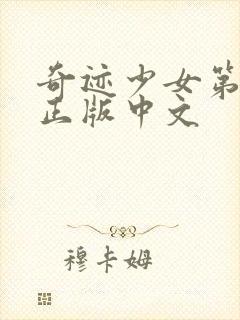 奇迹少女第
正版中文
穆卡姆